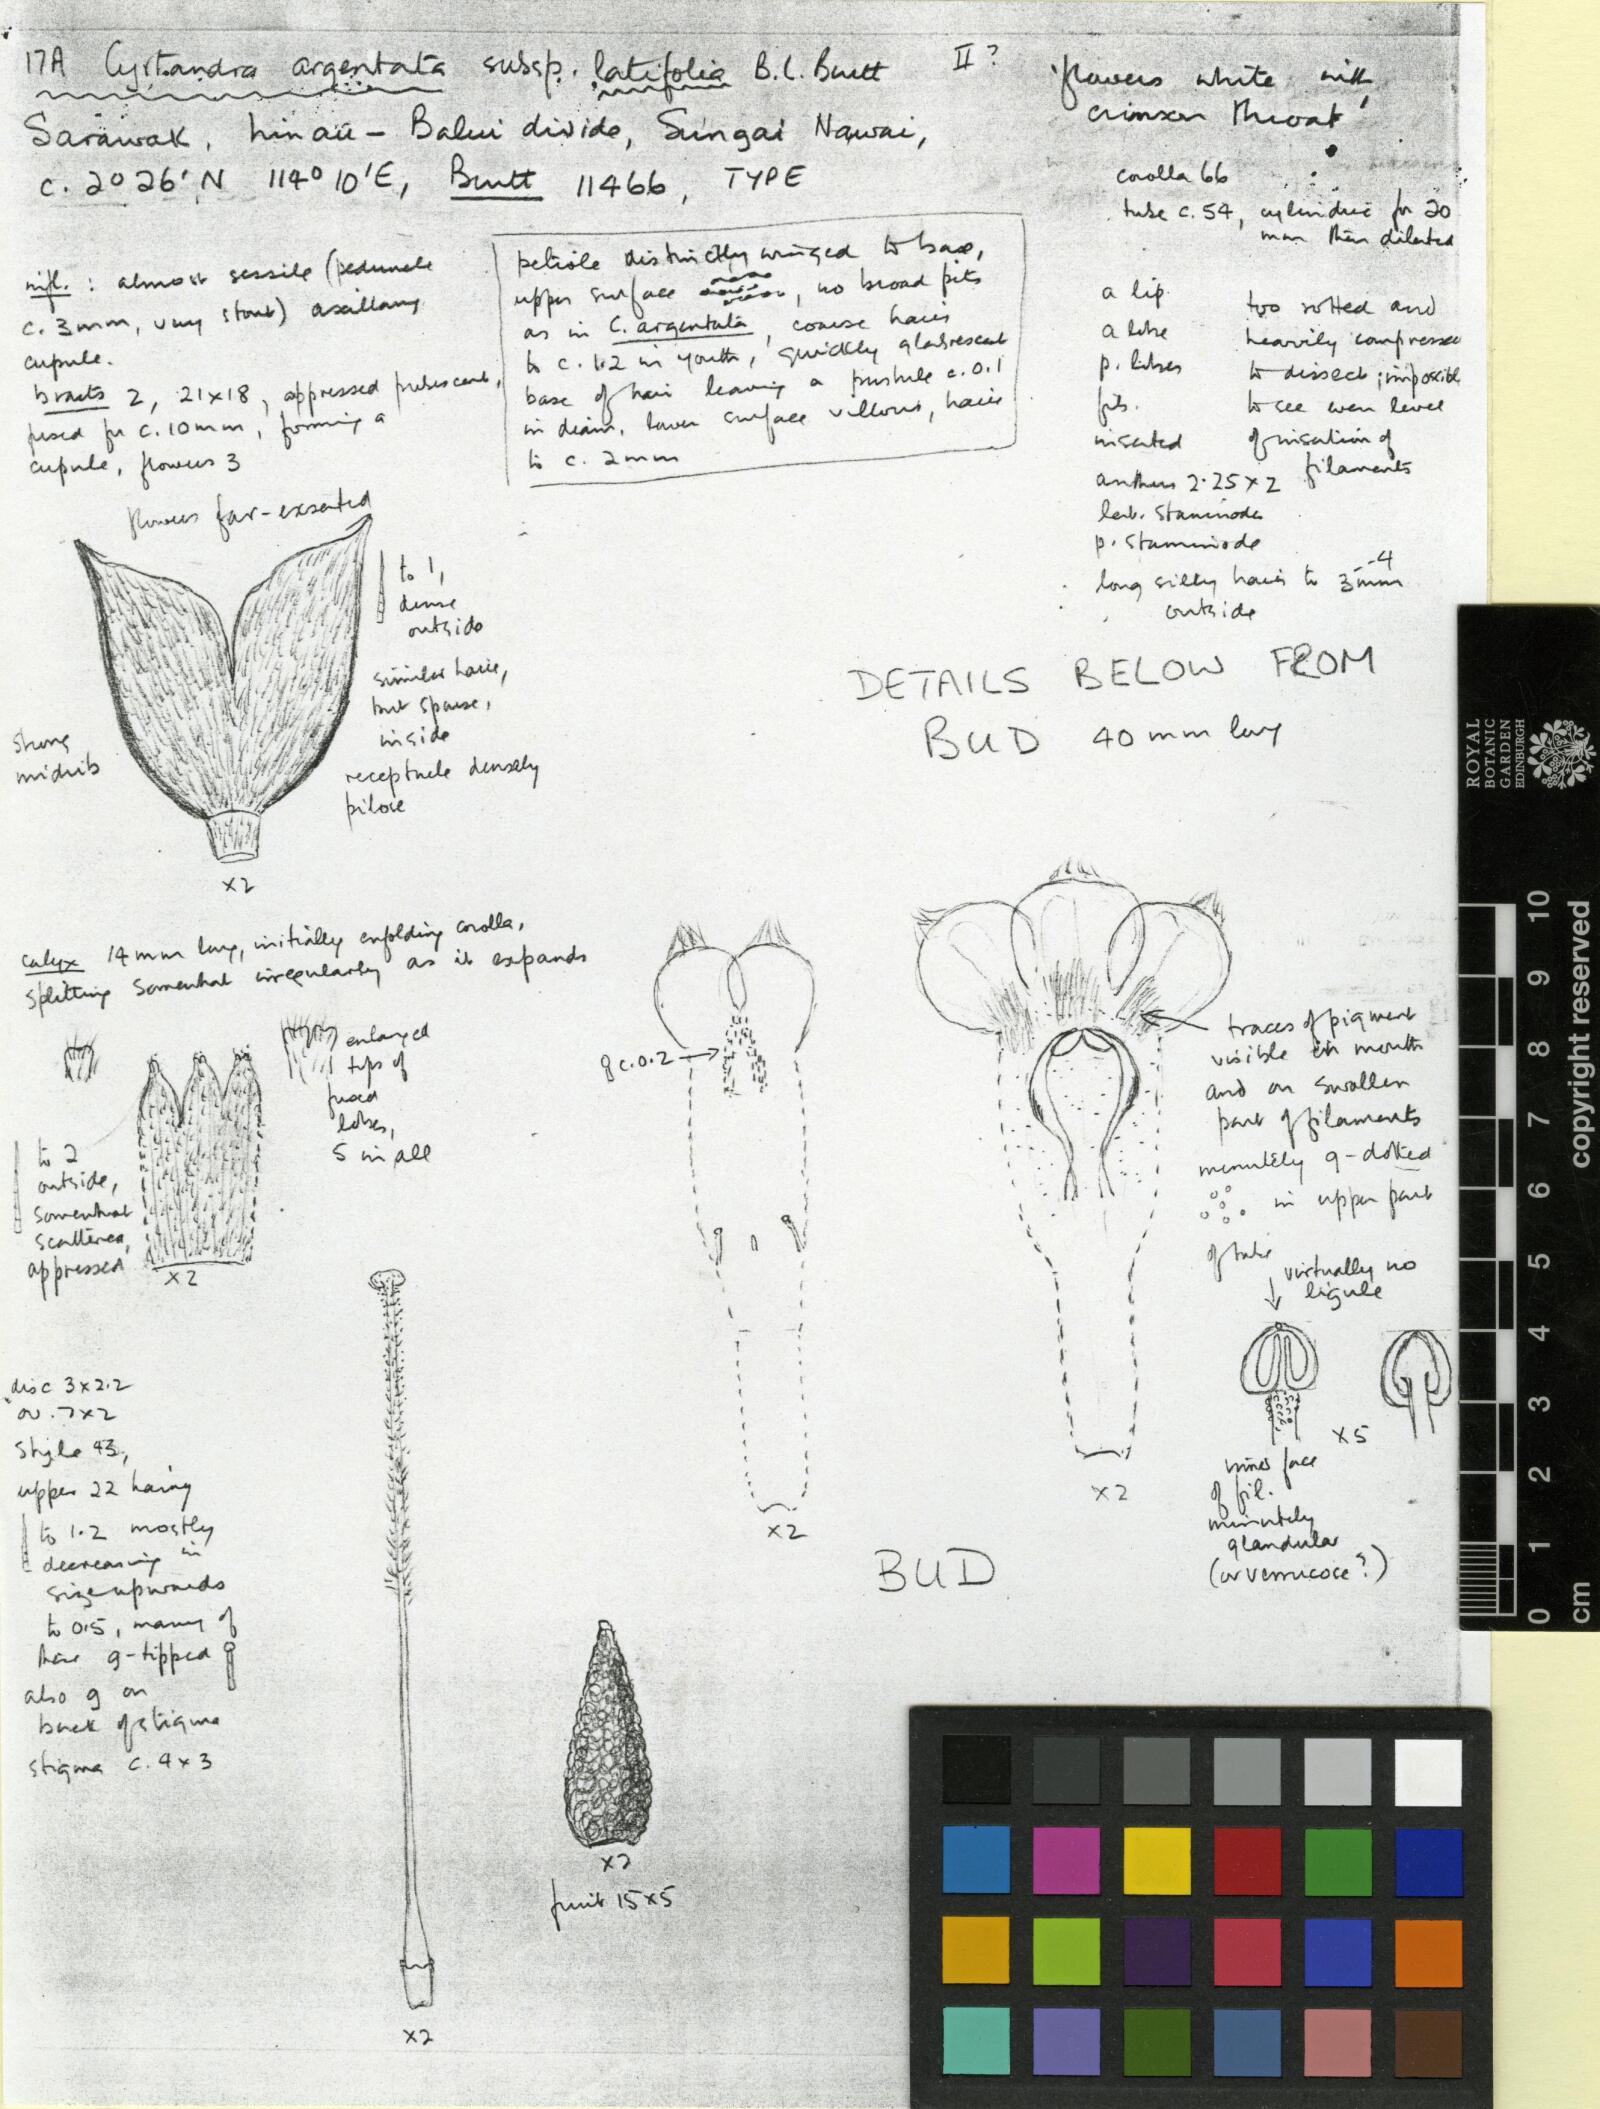 17A Cyrtandra argentata subsp. latifolia B.L. Burtt II?
Sarawak, Linau – Balui divide, Sungai Nawai,
c. 2° 26' N 114° 10' E, Burtt 11466, TYPE
'flowers white with
crimson throat'
corolla 66
tube c. 54, cylindric for 20
mm then dilated
a lip
a lobe
p. lobes
fils.
inserted
anthers 2.25 x 2
lat. staminodes
p. staminode
long silky hairs to 3mm -4
outside
too rotted and
heavily compressed
to dissect; impossible
to see even level
of insertion of
filaments
infl. : almost sessile (peduncle
c. 3mm, very stout) axillary
cupule.
bracts 2, 21x18, appressed pubescent,
fused for c. 10mm, forming a
cupule, flowers 3
petiole distinctly winged to base,
upper surface , no broad pits
as in C. argentata, coarse hairs
to c. 1.2 in youth, quickly glabrescent
base of hair leaving a pustule c. 0.1
in diam, lower surface villous, hairs
to c. 2mm
flowers far-exserted
to 1,
dense
outside
similar hairs,
but sparse,
inside
receptacle densely
pilose
strong
midrib
x2
DETAILS BELOW FROM
BUD 40 mm long
calyx 14mm long, initially enfolding corolla,
splitting somewhat irregularly as it expands
enlarged
tips of
fused
lobes,
5 in all
to 2
outside,
somewhat
scattered,
appressed
x2
c. 0.2
x2
traces of pigment
visible in mouth
and on swollen
part of filaments
minutely g-dotted
in upper part
of tube
x2
virtually no
ligule
x5
inner face
of fil.
minutely
glandular
(or verrucose?)
BUD
disc 3x2.2
ov. 7x2
style 43,
upper 22 hairy
to 1.2 mostly
decreasing in
size upwards
to 0.5, many of
these g-tipped
also g on
back of stigma
stigma c. 4x3
x2
x2
fruit 15x5
ROYAL
BOTANIC
GARDEN
EDINBURGH
0 1 2 3 4 5 6 7 8 9 10
cm
copyright reserved